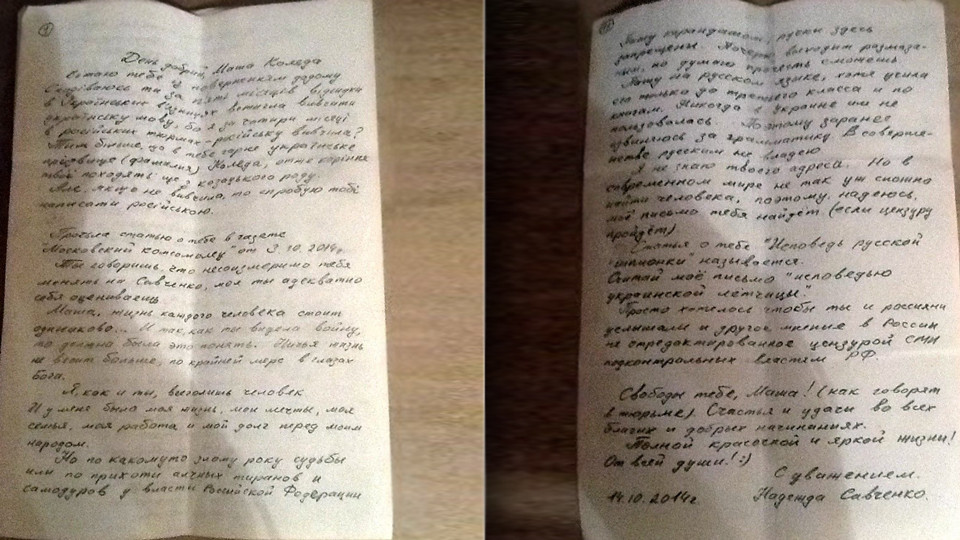 1
День добрий, Маша Коляда
Вітаю тебе із поверненням додому
Сподіваюсь ти за п'ять місяців відсидки
в Українських вязницях встигла вивчити
українську мову, бо я за чотири місяці
в російських тюрмах - російську вивчила?
Тим більше, що в тебе гарне українське
прізвище (фамилия) Коляда, отже коріння
твоє походять ще з козацького роду.
Але, якщо не вивчила, то спробую тобі
написати російською.
Прочла статью о тебе в газете
"Московский комсомолец" от 3.10.2014г.
Ты говоришь, что несоизмеримо тебя
менять на Савченко, мол ты адекватно
себя оцениваешь.
Маша, жизнь каждого человека стоит
одинаково... И так, как ты видела войну,
то должна была это понять. Ничья жизнь
не весит больше, по крайней мере в глазах
Бога.
Я, как и ты, всего лишь человек
И у меня была моя жизнь, мои мечты, моя
семья, моя работа и мой долг перед моим
народом.
Но по какомуто злому року судьбы
или по прихоти алчных тиранов и
самодуров у власти Российской Федерации
Пишу карандашом, ручки здесь
запрещены. Почерк выходит размаза-
ный, но думаю прочесть сможешь.
Пишу на русском языке, хотя учила
его только до третьего класса и по
книгам. Никогда в Украине им не
пользовалась. Поэтому заранее
извиняюсь за грамматику. В соверше-
нстве русским не владею.
Я не знаю твоего адреса. Но в
современном мире не так уж сложно
найти человека, поэтому, надеюсь,
моё письмо тебя найдёт (если цензуру
пройдёт)
Статья о тебе "Исповедь русской
"шпионки" называется.
Считай моё письмо "исповедью
украинской лётчицы".
Просто хотелось чтобы ты и россияне
услышали и другое мнение в России
не отредактированное цензурой СМИ
подконтрольных властям РФ.
Свободы тебе, Маша! (как говорят
в тюрьме) Счастья и удачи во всех
благих и добрых начинаниях.
Полной красоской и яркой жизни!
От всей души! :)
С уважением.
14.10.2014г Надежда Савченко.